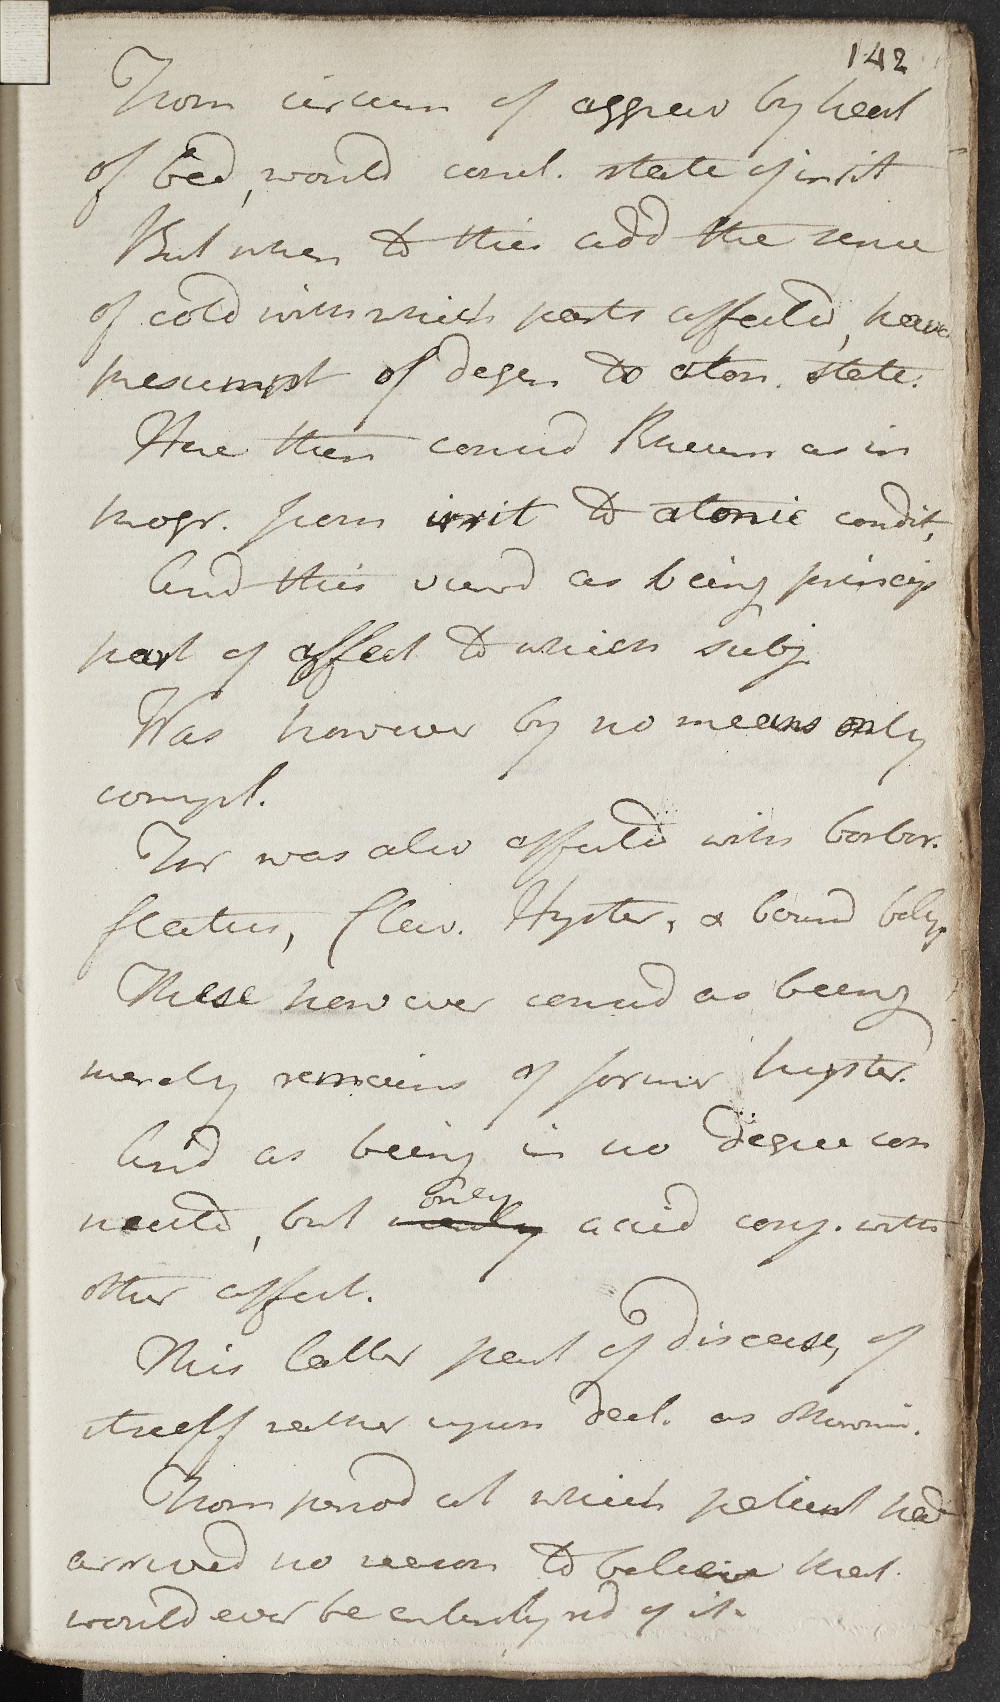 142
From circum of aggrav by heat
of bed, would concl. state of irrit
But when to this add the sense
of cold with which parts affected, have
presumpt of degen to aton. state.
Here then consid Rheum as in
progr. from irrit to atonic condit,
And this view'd as being princip
part of affect to which subj.
Was however by no means only
compl.
For was also affected with borbor.
flatus, Clav. Hyster, & bound belly.
These however consid as being
merely remains of former hyster.
And as being in no degree con
nected, but merely only accid conj. with
other affect.
This latter part of disease, of
itself rather upon decl. as otherwise.
From period at which patient had
arrived no reason to believe that
would ever be entirely rid of it.